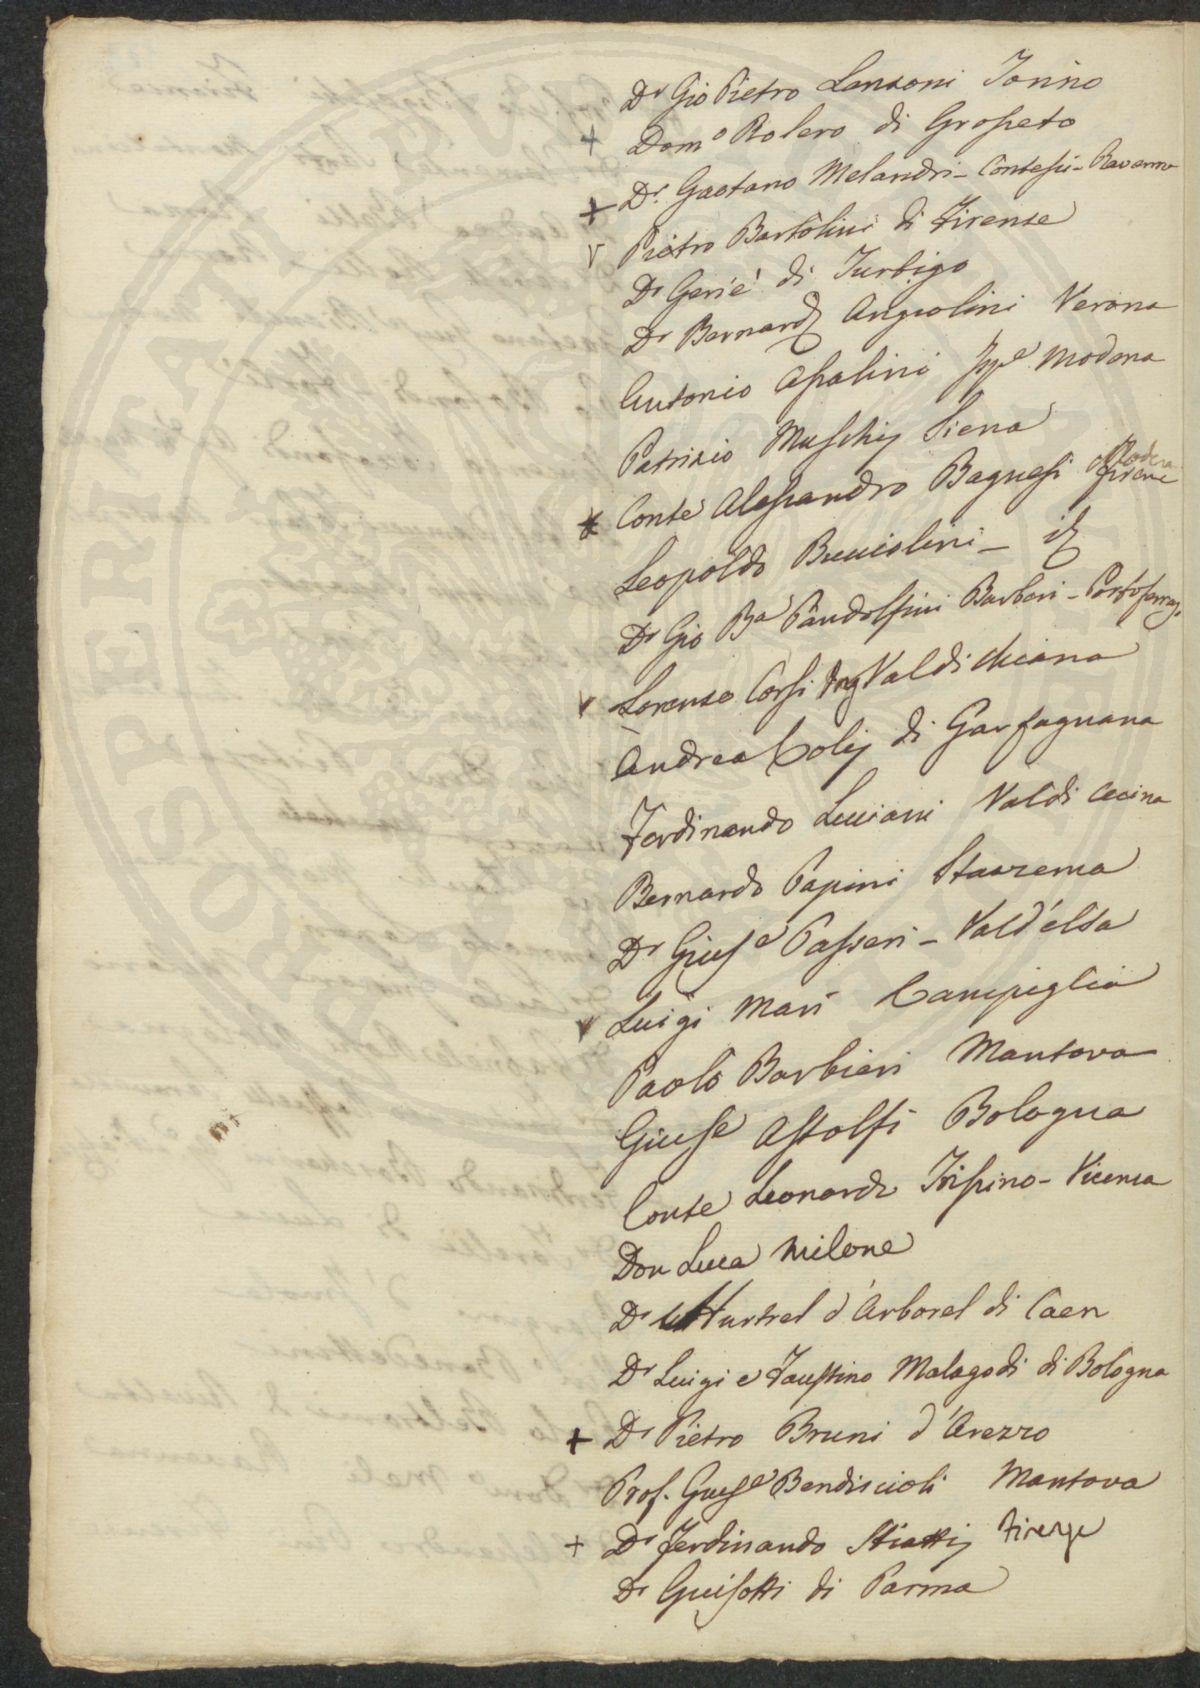 Dr Gio Pietro Lanzoni Torino
+ Domo Bolero di Grosseto
+ Dr. Gaetano Melandri - Contessi - Ravenna
v Pietro Bartolini di Firenze
Dr Gerié di Turbigo
Dr Bernardo Angiolini Verona
Antonio Assalini Modena
Patrizio Muschi Siena
+ Conte Alessandro Bagnesi Firenze
Leopoldo Bucciolini - id
Dr Gio Ba Pandolfini Barberi - Portoferraj.
v Lorenzo Corsi Ing Valdichiana
Andrea Colij di Garfagnana
Ferdinando Luciani Valdi Cecina
Bernardo Papini Stazzema
Dr Giuse Passeri - Vald'elsa
v Luigi Mari Campiglia
Paolo Barbieri Mantova
Giuse Astolfi Bologna
Conte Leonardo Trissino - Vicenza
Don Luca Milone
Dr Hurtrel d'Arborel di Caen
Dr Luigi e Faustino Malagodi di Bologna
+ Dr Pietro Bruni d'Arezzo
Prof. Giuse Bendiscioli Mantova
+ Dr Ferdinando Stiattij Firenze
Dr Guisotti di Parma